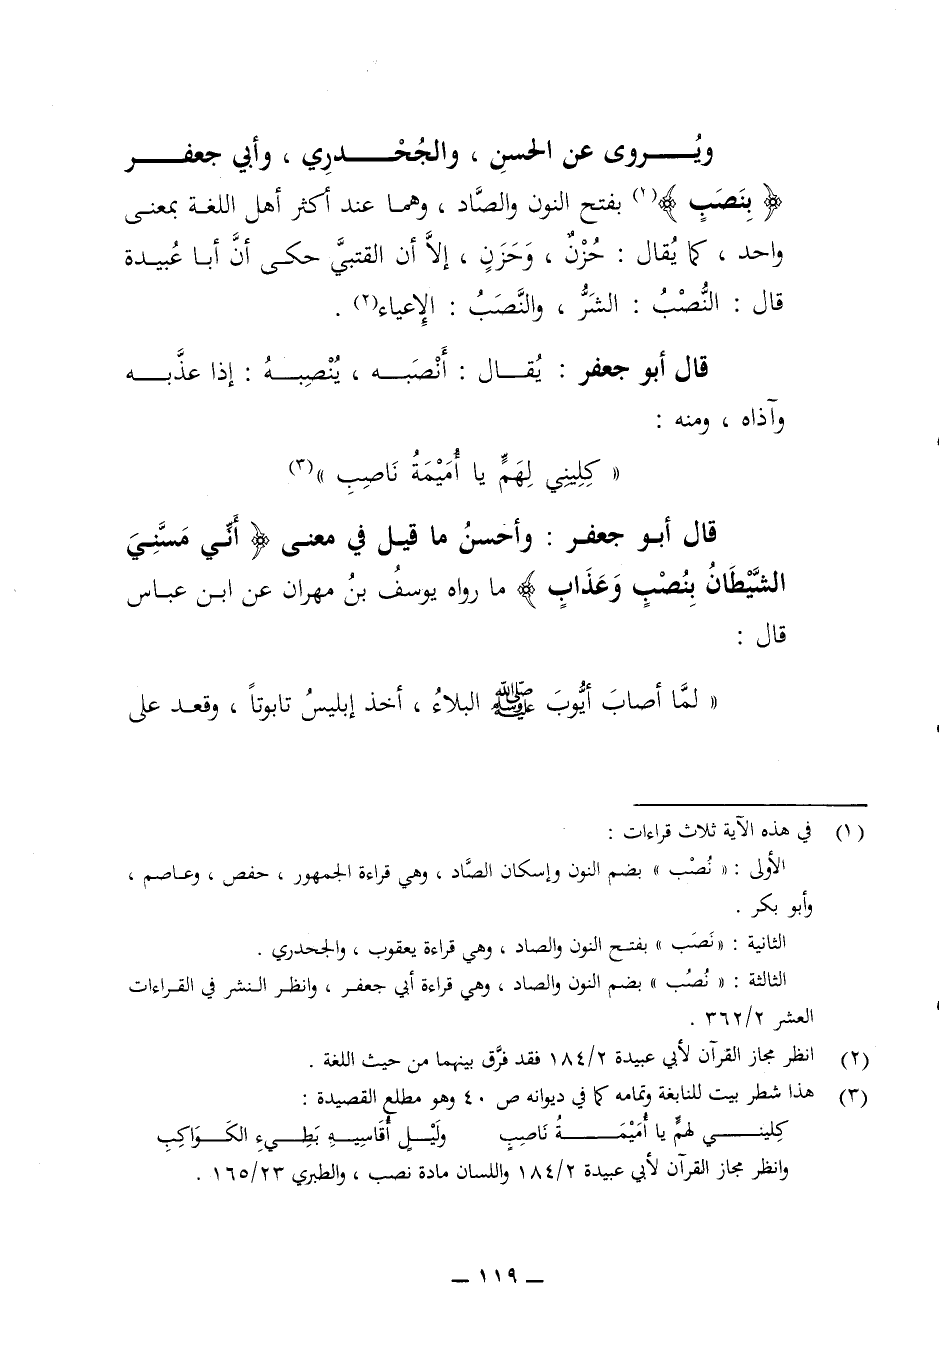 ويُـــروى عن الحسنِ ، والجُحْـــدرِي ، وأبي جعفـــر
﴿ بِنَصَبٍ ﴾(١) بفتح النون والصَّاد ، وهما عند أكثر أهل اللغة بمعنى
واحد ، كما يُقال : حُزْنٌ ، وَحَزَنٍ ، إلاَّ أن القتبيَّ حكى أنَّ أبا عُبيدة
قال : النُّصْبُ : الشرُّ ، والنَّصَبُ : الإعياء(٢) .
قال أبو جعفر : يُقـــال : أَنْصَبـــه ، يُنْصِبـــهُ : إذا عذَّبـــه
وآذاه ، ومنه :
« كِلِينِي لِهَمٍّ يا أُمَيْمَةُ نَاصِبِ »(٣)
قال أبـو جعفـر : وأحسنُ ما قيـل في معنـى ﴿ أَنِّي مَسَّنِيَ
الشَّيْطَانُ بِنُصْبٍ وَعَذَابٍ ﴾ ما رواه يوسفُ بنُ مهران عن ابـن عبـاس
قال :
« لمَّا أصابَ أيُّوبَ ﷺ البلاءُ ، أخذ إبليسُ تابوتاً ، وقعـد على
(١) في هذه الآية ثلاث قراءات :
الأولى : « نُصْب » بضم النون وإسكان الصَّاد ، وهي قراءة الجمهور ، حفص ، وعـاصم ،
وأبو بكر .
الثانية : «نَصَب » بفتـح النون والصاد ، وهي قراءة يعقوب ، والجحدري .
الثالثة : « نُصُب » بضم النون والصاد ، وهي قراءة أبي جعفـر ، وانظـر الـنشر في القـراءات
العشر ٣٦٢/٢ .
(٢) انظر مجاز القرآن لأبي عبيدة ١٨٤/٢ فقد فرَّق بينهما من حيث اللغة .
(٣) هذا شطر بيت للنابغة وتمامه كما في ديوانه ص ٤٠ وهو مطلع القصيدة :
كِلينـــي لهمٍّ يا أُمَيْمَـــةُ نَاصِبِ وليْـــلٍ أُقَاسِيـــهِ بَطِـــيءِ الكَـــوَاكِبِ
وانظر مجاز القرآن لأبي عبيدة ١٨٤/٢ واللسان مادة نصب ، والطبري ١٦٥/٢٣ .
ـ ١١٩ ـ